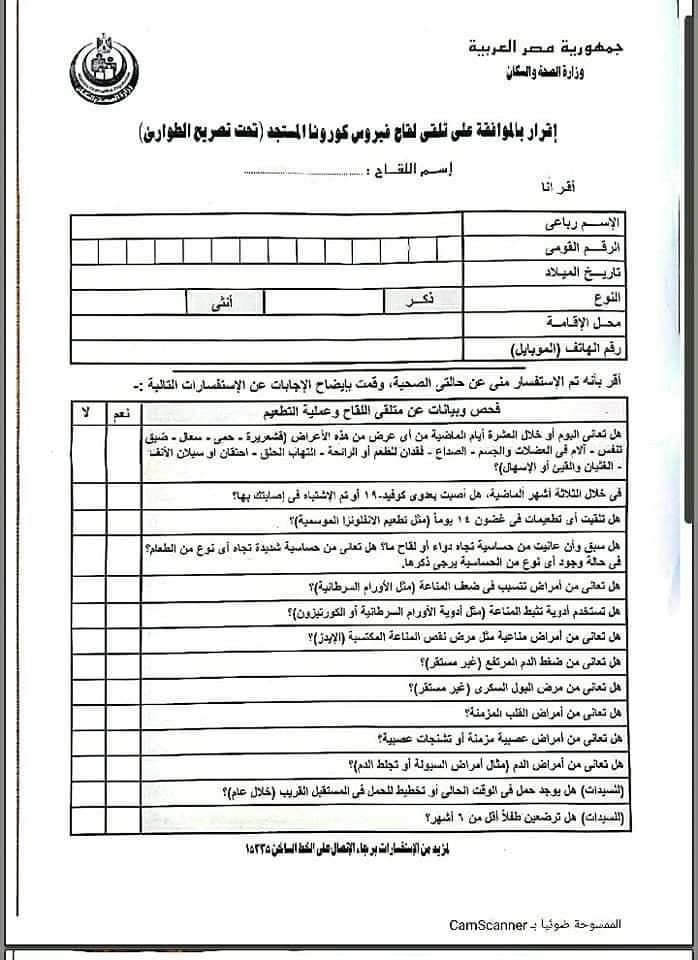 جمهورية مصر العربية
وزارة الصحة والسكان
إقرار بالموافقة على تلقى لقاح فيروس كورونا المستجد (تحت تصريح الطوارئ)
إسم اللقاح : ..............................
أقر انا
الإسم رباعى
الرقم القومى
تاريخ الميلاد
النوع ذكر أنثى
محل الإقامة
رقم الهاتف (الموبايل)
أقر بأنه تم الإستفسار منى عن حالتى الصحية، وقمت بإيضاح الإجابات عن الإستفسارات التالية :-
فحص وبيانات عن متلقى اللقاح وعملية التطعيم نعم لا
هل تعانى اليوم أو خلال العشرة أيام الماضية من أى عرض من هذه الأعراض (قشعريرة - حمى - سعال - ضيق
تنفس - آلام فى العضلات والجسم - الصداع - فقدان للطعم أو الرائحة - التهاب الحلق - احتقان او سيلان الأنف
- الغثيان والقيئ أو الإسهال)؟
فى خلال الثلاثة أشهر الماضية، هل أصبت بعدوى كوفيد-١٩ أو تم الإشتباه فى إصابتك بها؟
هل تلقيت أى تطعيمات فى غضون ١٤ يوماً (مثل تطعيم الانفلونزا الموسمية)؟
هل سبق وأن عانيت من حساسية تجاه دواء أو لقاح ما؟ هل تعانى من حساسية شديدة تجاه أى نوع من الطعام؟
فى حالة وجود أى نوع من الحساسية يرجى ذكرها.
هل تعانى من أمراض تتسبب فى ضعف المناعة (مثل الأورام السرطانية)؟
هل تستخدم أدوية تثبط المناعة (مثل أدوية الأورام السرطانية أو الكورتيزون)؟
هل تعانى من أمراض مناعية مثل مرض نقص المناعة المكتسبة (الإيدز)؟
هل تعانى من ضغط الدم المرتفع (غير مستقر)؟
هل تعانى من مرض البول السكرى (غير مستقر)؟
هل تعانى من أمراض القلب المزمنة؟
هل تعانى من أمراض عصبية مزمنة أو تشنجات عصبية؟
هل تعانى من أمراض الدم (مثال أمراض السيولة أو تجلط الدم)؟
(للسيدات) هل يوجد حمل فى الوقت الحالى أو تخطيط للحمل فى المستقبل القريب (خلال عام)؟
(للسيدات) هل ترضعين طفلاً أقل من ٦ أشهر؟
لمزيد من الإستفسارات برجاء الإتصال على الخط الساخن ١٥٣٣٥
الممسوحة ضوئيا بـ CamScanner